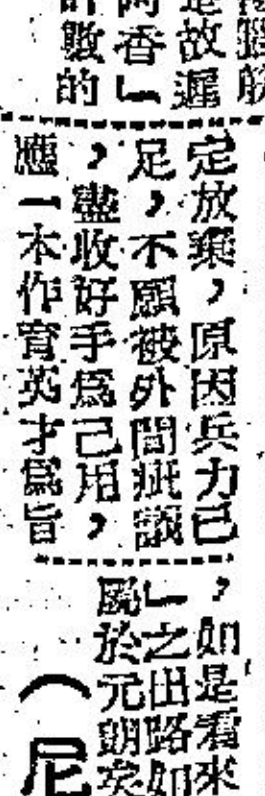 是故遲
香」
數的
定放棄，原因兵力已
足，不願被外間疵議
，盡收好手爲己用，
應一本作育英才爲旨
，如是看來
」之出路如
屬於元朗矣
（尼